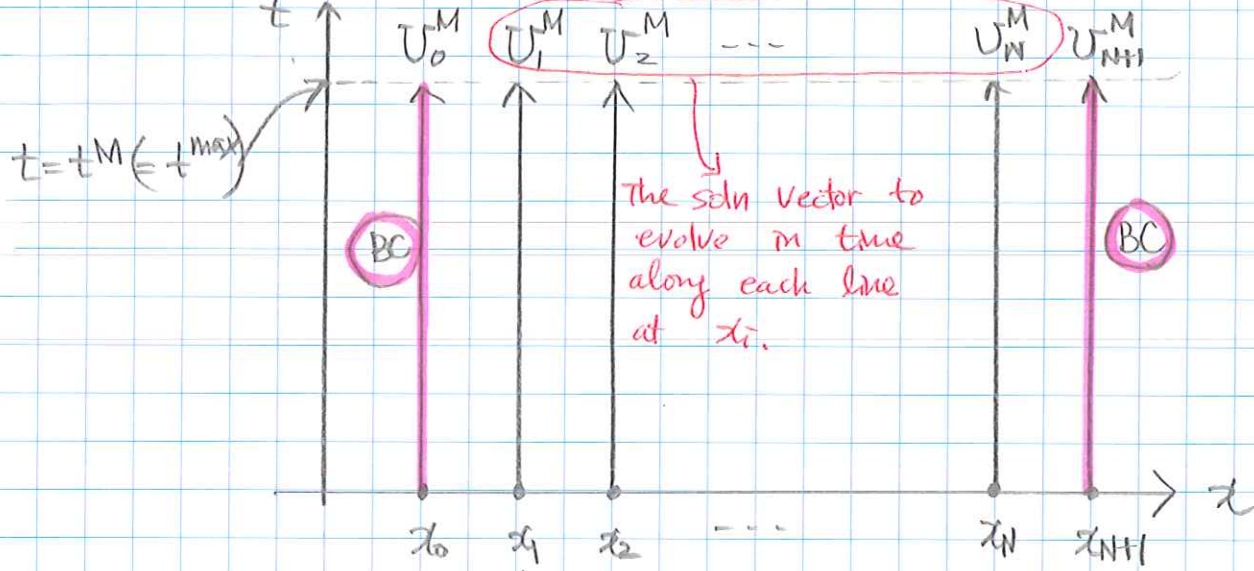 t
U₀ᴹ U₁ᴹ U₂ᴹ --- U_Nᴹ U_{N+1}ᴹ
t = tᴹ (= t^{max})
BC
The soln vector to
evolve in time
along each line
at xᵢ.
BC
x
x₀ x₁ x₂ --- x_N x_{N+1}